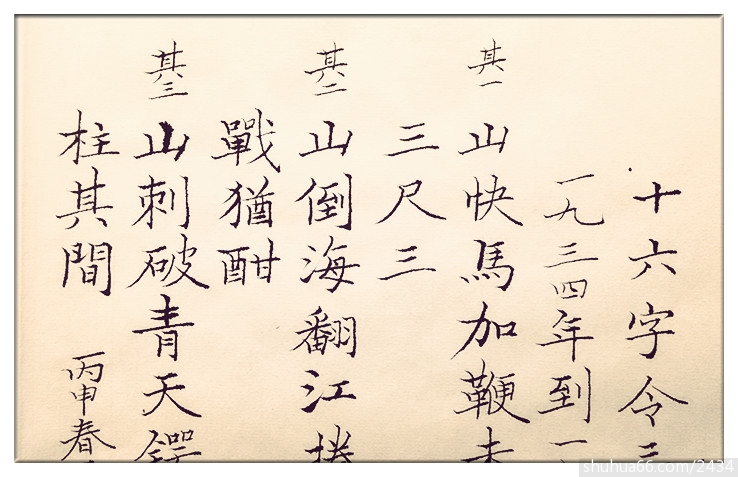 十六字令三
一九三四年到一
其一 山快馬加鞭未
三尺三
其二 山倒海翻江捲
戰猶酣
其三 山刺破青天鍔
柱其間 丙申春
shuhua66.com/2434